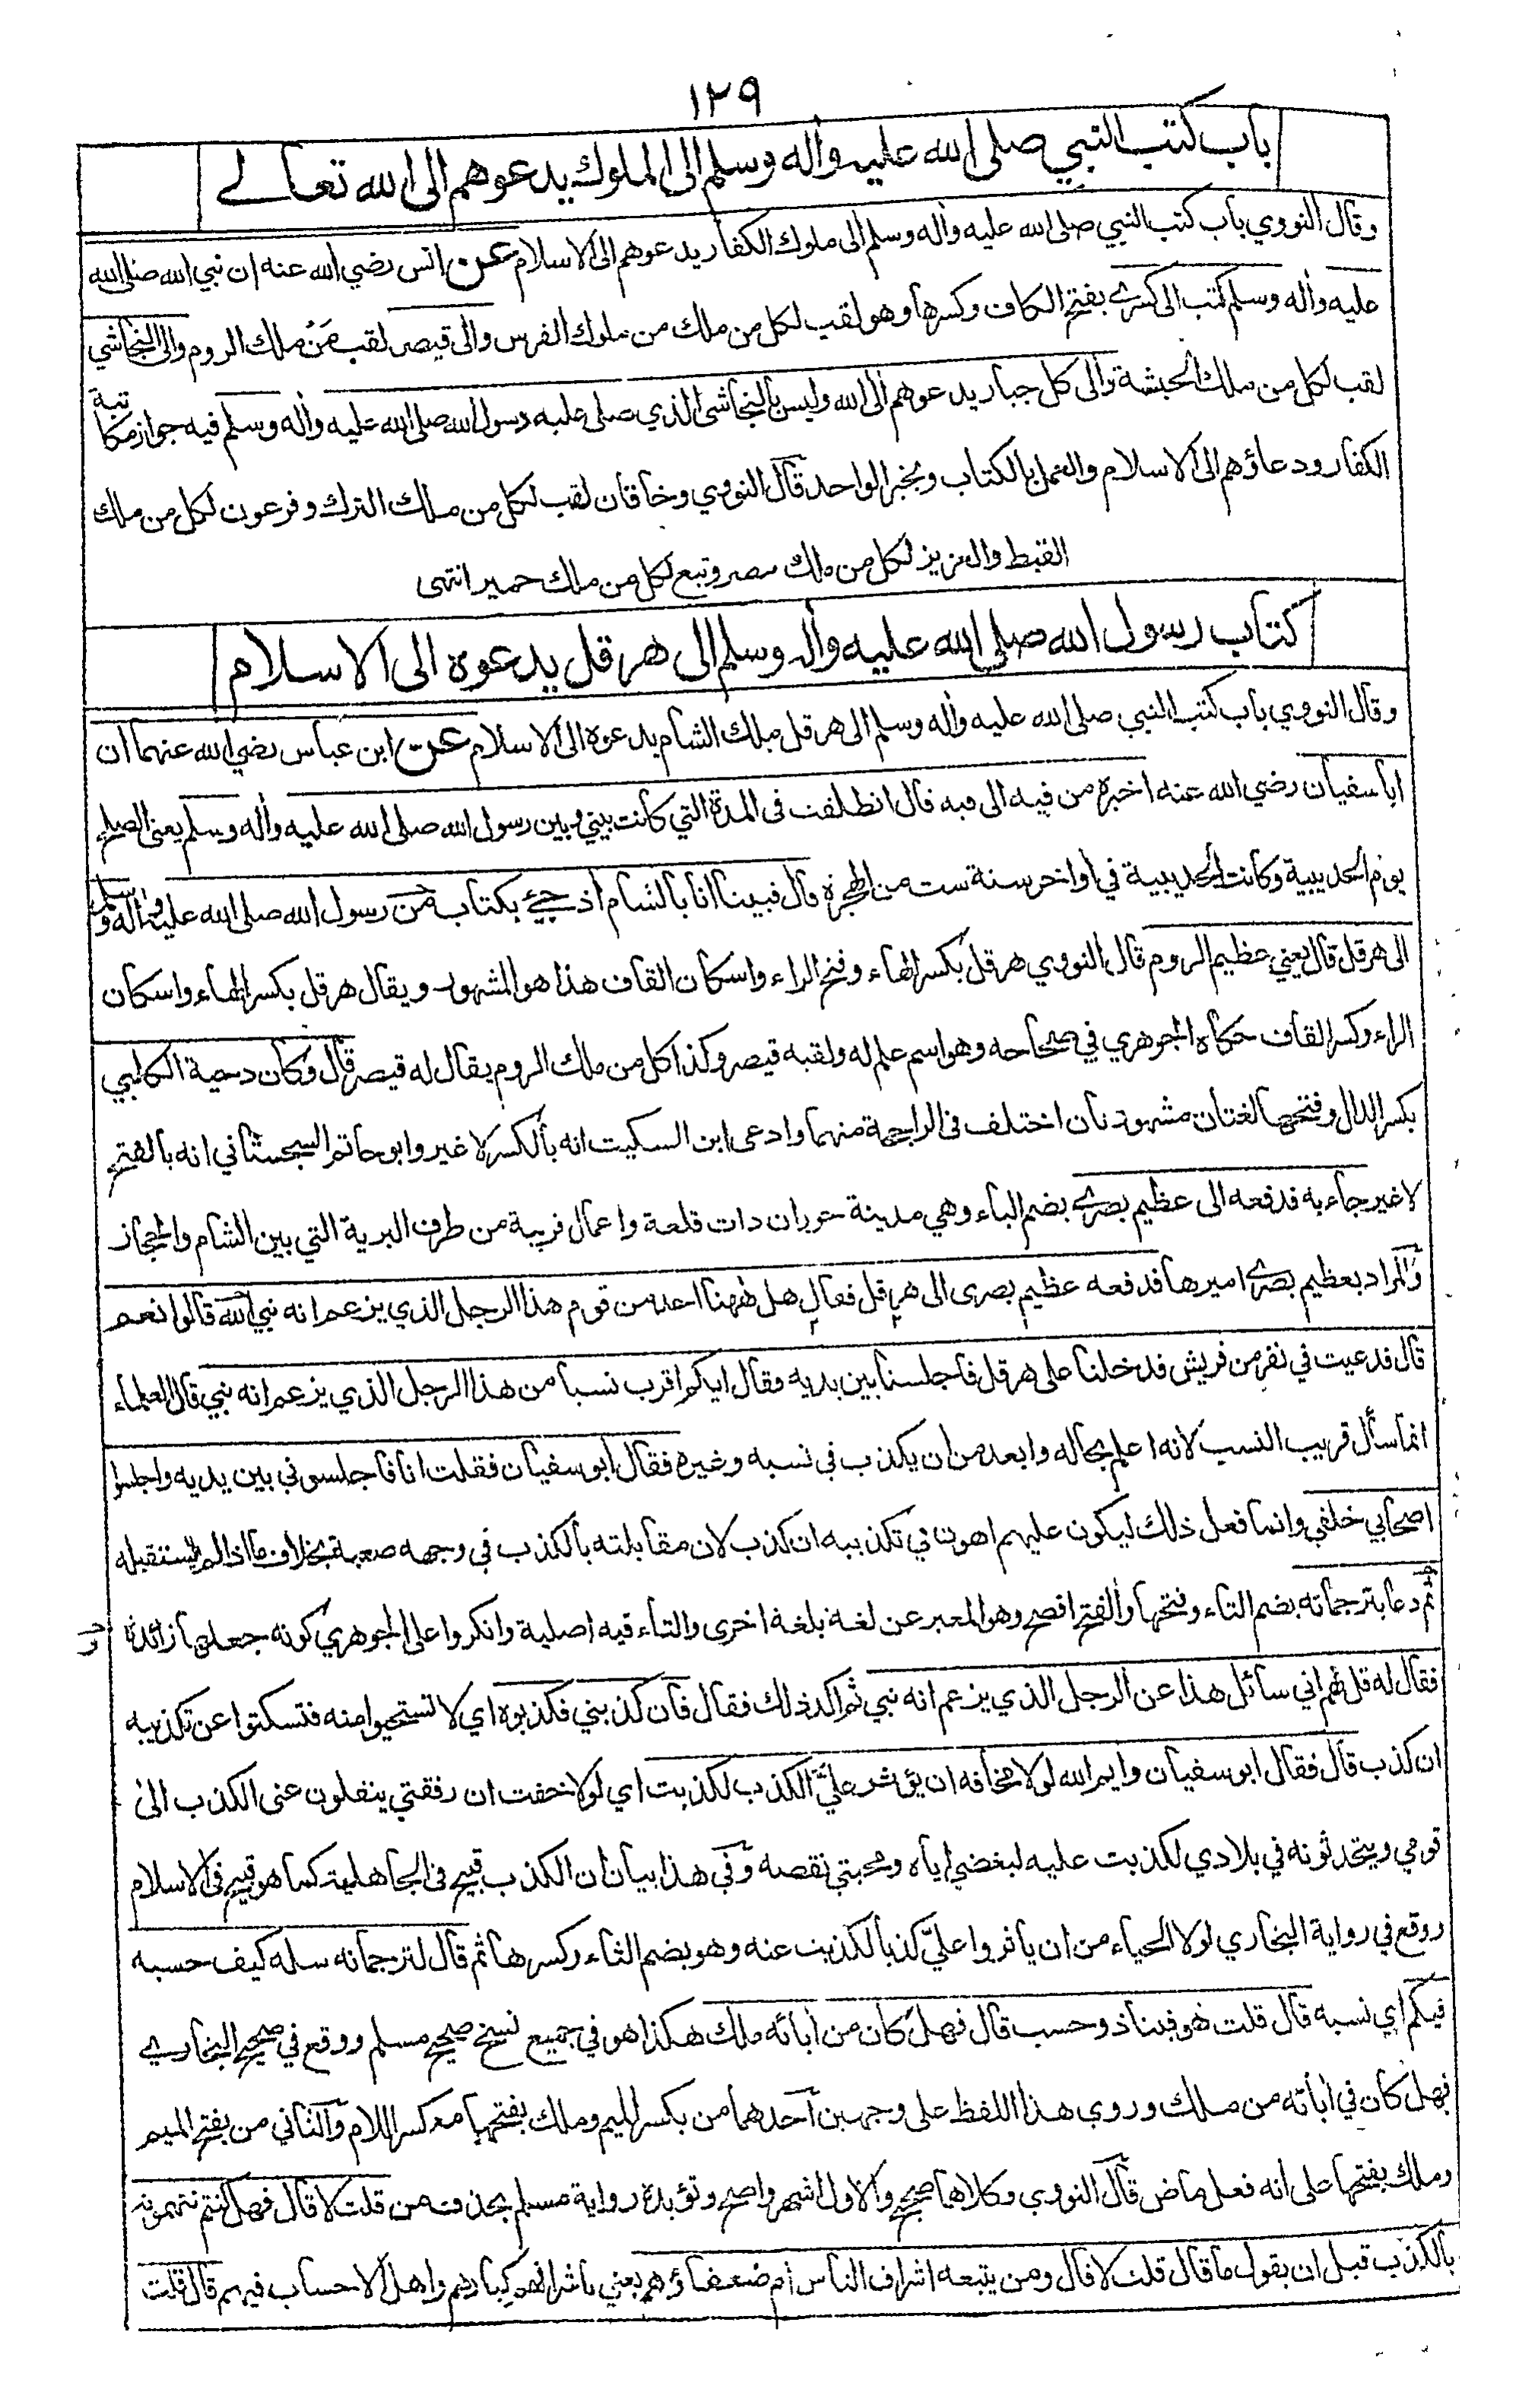 ١٢٩
باب كتب النبي صلى الله عليه وأله وسلم الى الملوك يدعوهم الى الله تعالے
وقال النووي باب كتب النبي صلى الله عليه وأله وسلم الى ملوك الكفار يدعوهم الى الاسلام عن انس رضي الله عنه ان نبي الله صلى الله
عليه وأله وسلم كتب الى كسرے بفتح الكاف وكسرها وهو لقب لكل من ملك من ملوك الفرس والى قيصر لقب مَنْ ملك الروم والى النجاشي
لقب لكل من ملك الحبشة والى كل جبار يدعوهم الى الله وليس بالنجاشى الذي صلى عليه رسول الله صلى الله عليه وأله وسلم فيه جواز مكاتبة
الكفار ودعاؤهم الى الاسلام والعمل بالكتاب وبخبر الواحد قال النووي وخاقان لقب لكل من ملك الترك وفرعون لكل من ملك
القبط والعزيز لكل من ملك مصر وتبع لكل من ملك حمير انتهى
كتاب رسول الله صلى الله عليه وأله وسلم الى هرقل يدعوه الى الاسلام
وقال النووي باب كتب النبي صلى الله عليه وأله وسلم الى هرقل ملك الشام يدعوه الى الاسلام عن ابن عباس رضي الله عنهما ان
ابا سفيان رضي الله عنه اخبره من فيه الى فيه قال انطلقت فى المدة التي كانت بيني وبين رسول الله صلى الله عليه وأله وسلم يعنى الصلح
يوم الحديبية وكانت الحديبية في اواخر سنة ست من الهجرة قال فبينا انا بالشام اذ جيئ بكتاب من رسول الله صلى الله عليه وأله وسلم
الى هرقل قال يعني عظيم الروم قال النووي هرقل بكسر الهاء وفتح الراء واسكان القاف هذا هو المشهور ويقال هرقل بكسر الهاء واسكان
الراء وكسر القاف حكاه الجوهري في صحاحه وهو اسم علم له ولقبه قيصر وكذا كل من ملك الروم يقال له قيصر قال وكان دحية الكلبي
بكسر الدال وفتحها لغتان مشهورتان اختلف فى الراجحة منهما وادعى ابن السكيت انه بالكسر لا غير وابو حاتم السجستاني انه بالفتح
لا غير جاء به فدفعه الى عظيم بصرے بضم الباء وهي مدينة حوران ذات قلعة واعمال قريبة من طرف البرية التي بين الشام والحجاز
والمراد بعظيم بصرے اميرها فدفعه عظيم بصرى الى هرقل فقال هل ههنا احد من قوم هذا الرجل الذي يزعم انه نبي الله قالوا نعم
قال فدعيت في نفر من قريش فدخلنا على هرقل فاجلسنا بين يديه وقال ايكم اقرب نسبا من هذا الرجل الذي يزعم انه نبي قال العلماء
انما سأل قريب النسب لانه اعلم بحاله وابعد من ان يكذب في نسبه وغيره فقال ابو سفيان فقلت انا فاجلسوني بين يديه واجلسوا
اصحابي خلفي وانما فعل ذلك ليكون عليهم اهون في تكذيبه ان كذب لان مقابلته بالكذب في وجهه صعبة بخلاف ما اذا لم يستقبله
ثم دعا بترجمانه بضم التاء وفتحها والفتح افصح وهو المعبر عن لغة بلغة اخرى والتاء فيه اصلية وانكروا على الجوهري كونه جعلها زائدة
فقال له قل لهم اني سائل هذا عن الرجل الذي يزعم انه نبي ثم اكد ذلك فقال فان كذبني فكذبوه اي لا تستحيوا منه فتسكتوا عن تكذيبه
ان كذب قال فقال ابو سفيان وايم الله لولا مخافة ان يؤثر علي الكذب لكذبت اي لولا خفت ان رفقتي ينقلون عنى الكذب الى
قومي ويتحدثونه في بلادي لكذبت عليه لبغضي اياه ومحبتي نقصه وفي هذا بيان ان الكذب قبيح فى الجاهلية كما هو قبيح فى الاسلام
ووقع في رواية البخاري لولا الحياء من ان يأثروا عليّ كذبا لكذبت عنه وهو بضم الثاء وكسرها ثم قال لترجمانه سله كيف حسبه
فيكم اي نسبه قال قلت هو فينا ذو حسب قال فهل كان من أبائه ملك هكذا هو في جميع نسخ صحيح مسلم ووقع في صحيح البخارے
فهل كان في أبائه من ملك وروي هذا اللفظ على وجهين احدهما من بكسر الميم وملك بفتحها مع كسر اللام والثاني من بفتح الميم
وملك بفتحها على انه فعل ماض قال النووي وكلاهما صحيح والاول اشهر واصح وتؤيده رواية مسلم بحذف من قلت لا قال فهل كنتم تتهمونه
بالكذب قبل ان يقول ما قال قلت لا قال ومن يتبعه اشراف الناس ام ضعفاؤهم يعني باشرافهم كبارهم واهل الاحساب فيهم قال قلت